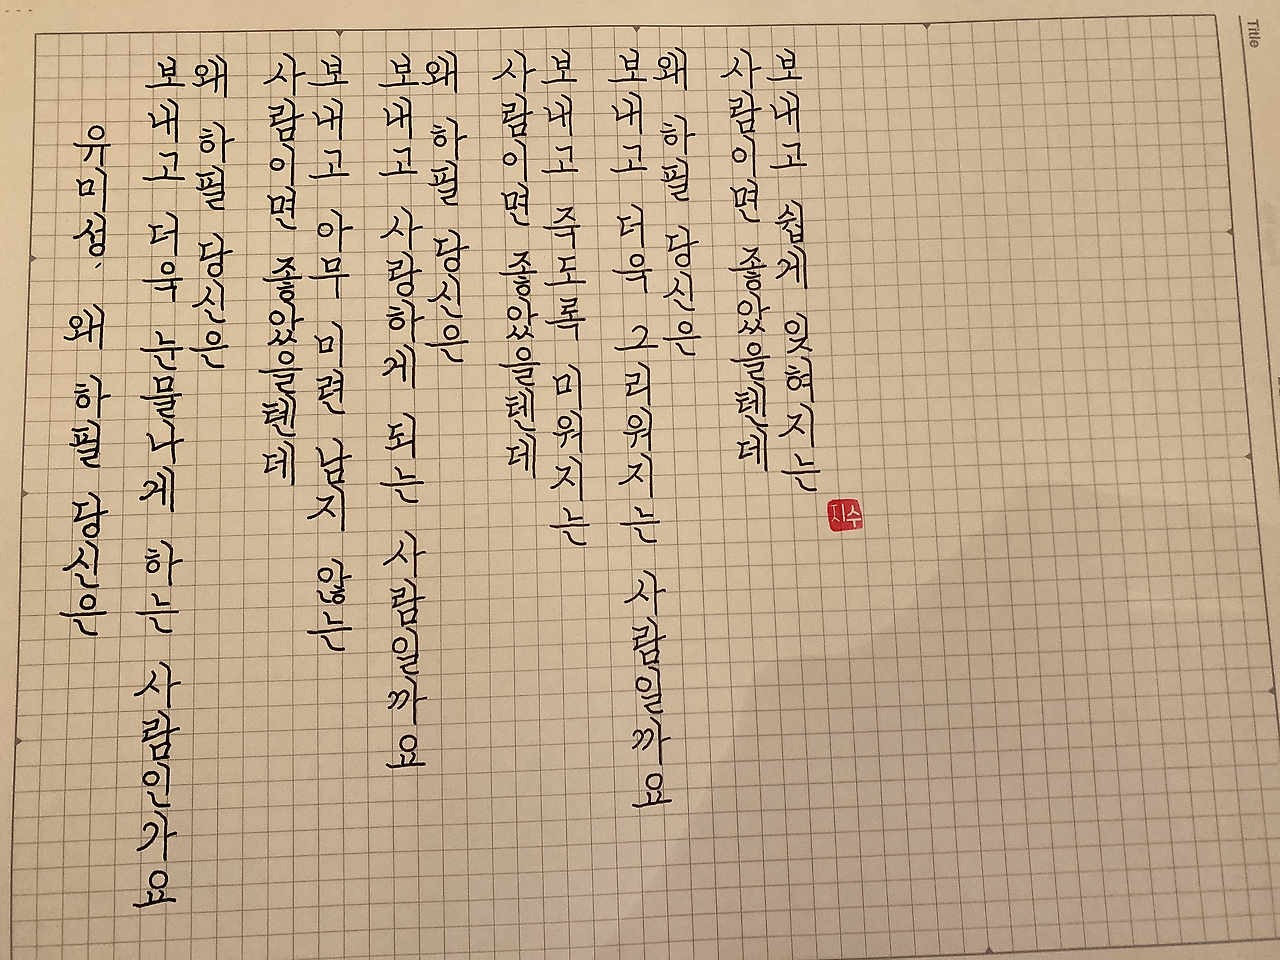 보내고 쉽게 잊혀지는
사람이면 좋았을텐데
왜 하필 당신은
보내고 더욱 그리워지는 사람일까요
보내고 죽도록 미워지는
사람이면 좋았을텐데
왜 하필 당신은
보내고 사랑하게 되는 사람일까요
보내고 아무 미련 남지 않는
사람이면 좋았을텐데
왜 하필 당신은
보내고 더욱 눈물나게 하는 사람인가요
유미성, 왜 하필 당신은
지수
Title